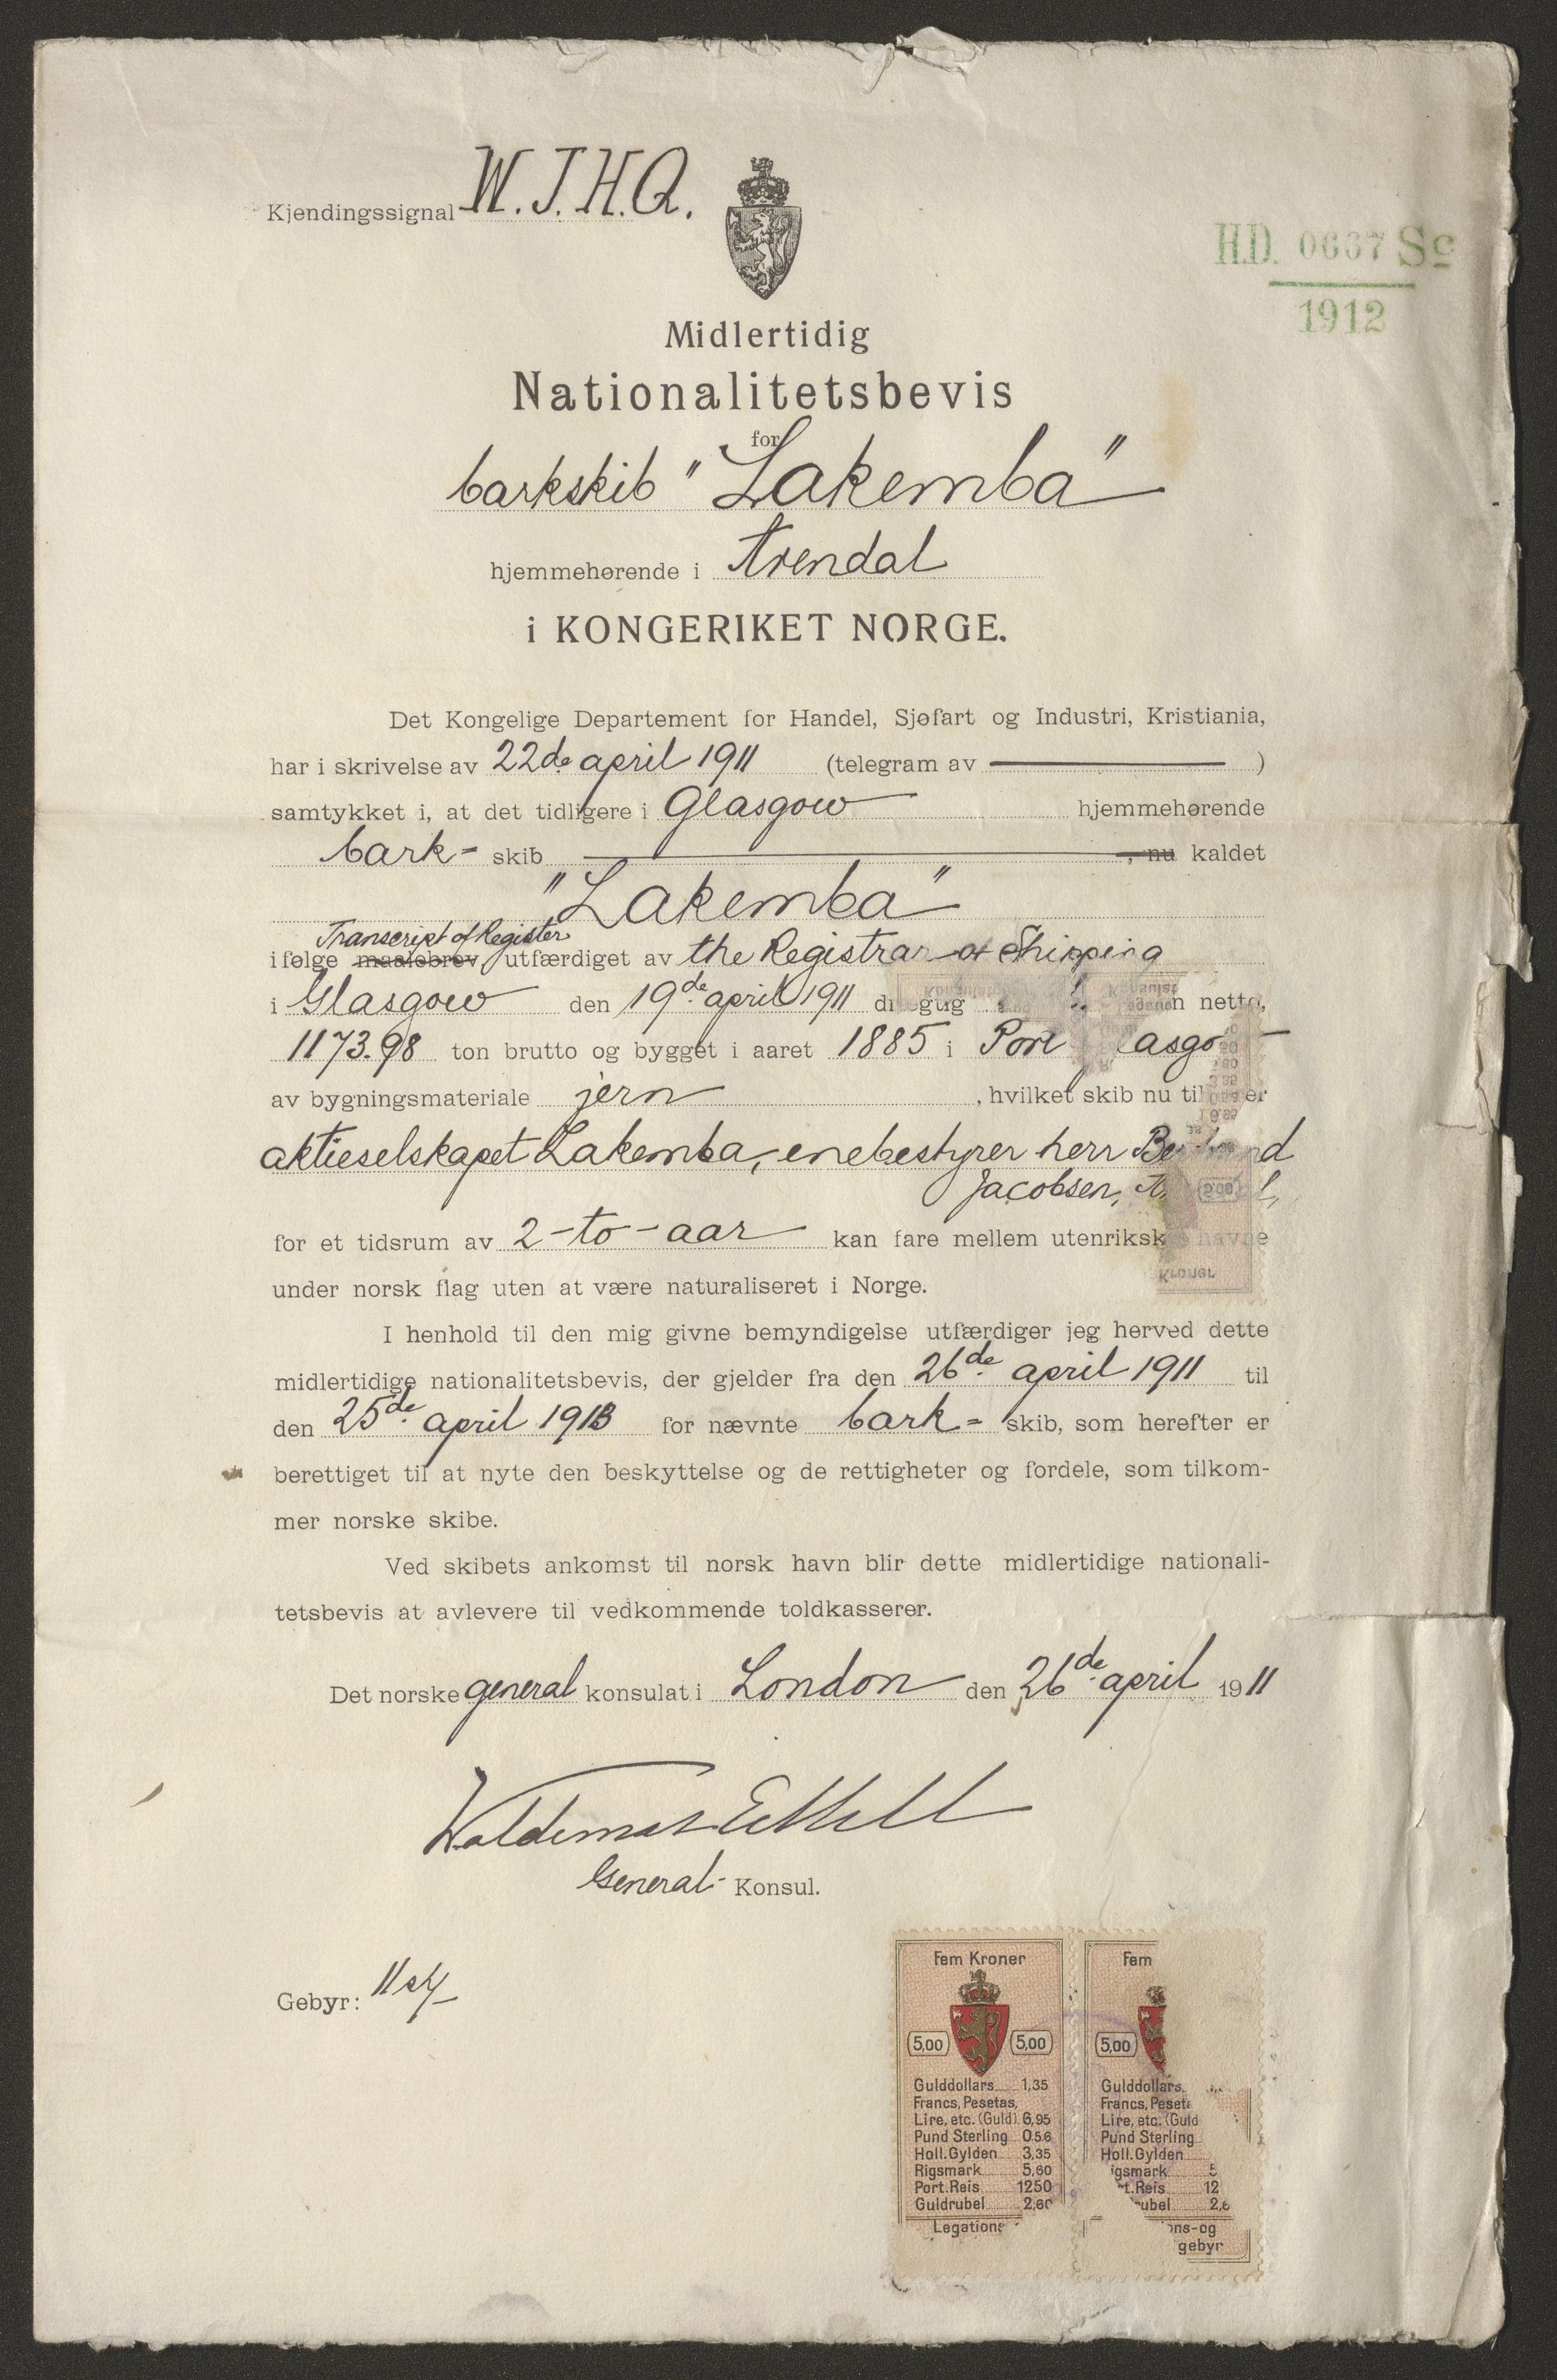 Kjendingssignal W.J.H.Q.
H.D. 0667 Sc
1912
Midlertidig
Nationalitetsbevis
for
barkskib "Lakemba"
hjemmehørende i Arendal
i KONGERIKET NORGE.
Det Kongelige Departement for Handel, Sjøfart og Industri, Kristiania,
har i skrivelse av 22de april 1911 (telegram av )
samtykket i, at det tidligere i Glasgow hjemmehørende
bark- skib , nu kaldet
"Lakemba"
Transcript of Register
ifølge maalebrev, utfærdiget av the Registrar of Shipping
i Glasgow den 19de april 1911 netto,
1173.98 ton brutto og bygget i aaret 1885 i Port
av bygningsmateriale jern , hvilket skib nu
aktieselskapet Lakemba, enebestyrer herr
Jacobsen,
for et tidsrum av 2-to-aar kan fare mellem havne
under norsk flag uten at være naturaliseret i Norge.
I henhold til den mig givne bemyndigelse utfærdiger jeg herved dette
midlertidige nationalitetsbevis, der gjelder fra den 26de april 1911 til
den 25de april 1913 for nævnte bark- skib, som herefter er
berettiget til at nyte den beskyttelse og de rettigheter og fordele, som tilkom-
mer norske skibe.
Ved skibets ankomst til norsk havn blir dette midlertidige nationali-
tetsbevis at avlevere til vedkommende toldkasserer.
Det norske general konsulat i London den 26de april 1911
Waldemar
General- Konsul.
Gebyr:
Fem Kroner
5,00 5,00
Gulddollars 1,35
Francs, Pesetas,
Lire, etc. (Guld) 6,95
Pund Sterling 0.5.6
Holl. Gylden 3,35
Rigsmark 5,60
Port. Reis 1250
Guldrubel 2,60
Fem
5,00
Gulddollars
Francs,
Lire, etc. (Guld
Pund Sterling
Holl. Gylden
gebyr